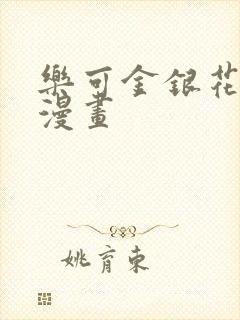 樂可金銀花
漫畫
姚育東